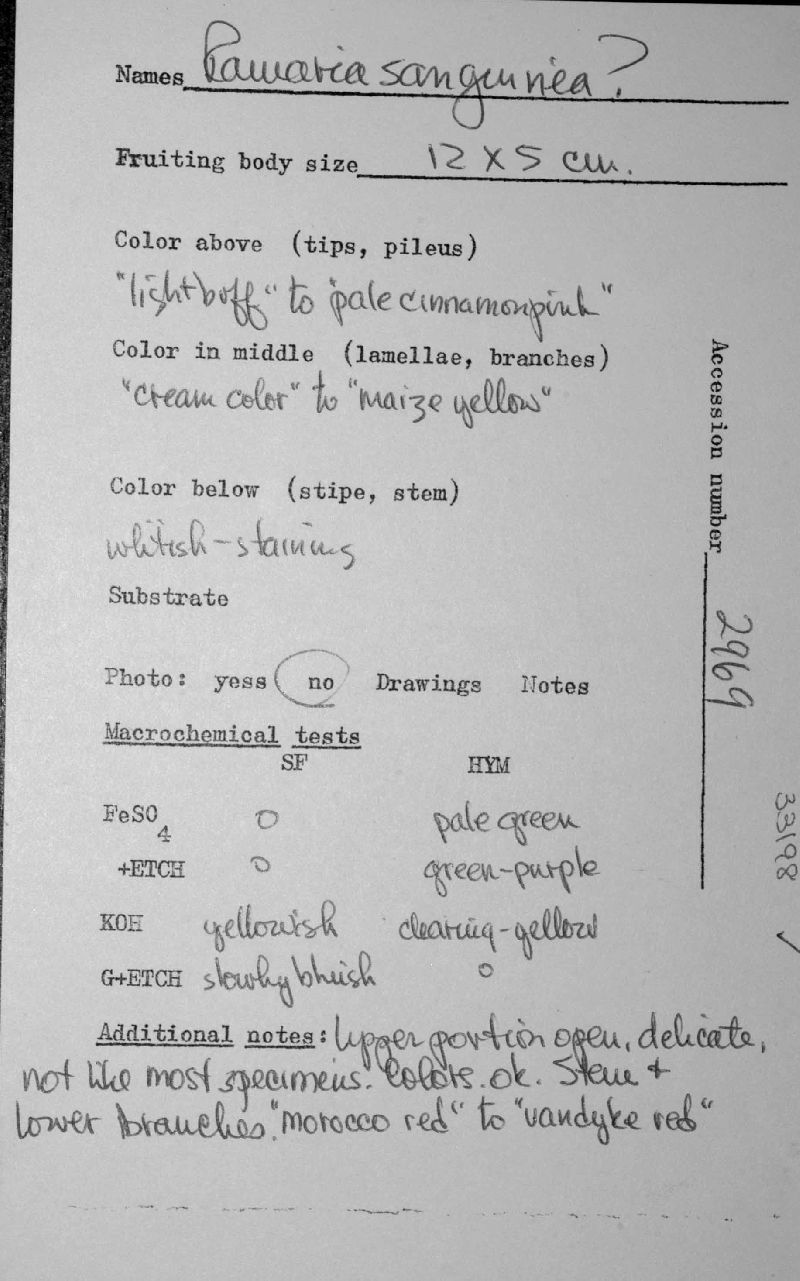 Names Ramaria sanguinea?
Fruiting body size 12 x 5 cm.
Color above (tips, pileus)
"light buff" to "pale cinnamonpink"
Color in middle (lamellae, branches)
"cream color" to "maize yellow"
Color below (stipe, stem)
whitish-staining
Substrate
Photo: yess no Drawings Notes
Macrochemical tests
SF HYM
FeSO4 0 pale green
+ETCH 0 green-purple
KOH yellowish clearing-yellow
G+ETCH slowly bluish 0
Additional notes: Upper portion open, delicate,
not like most specimens. Colors ok. Stem +
lower branches "morocco red" to "vandyke red"
Accession number 2969
33198 ✓